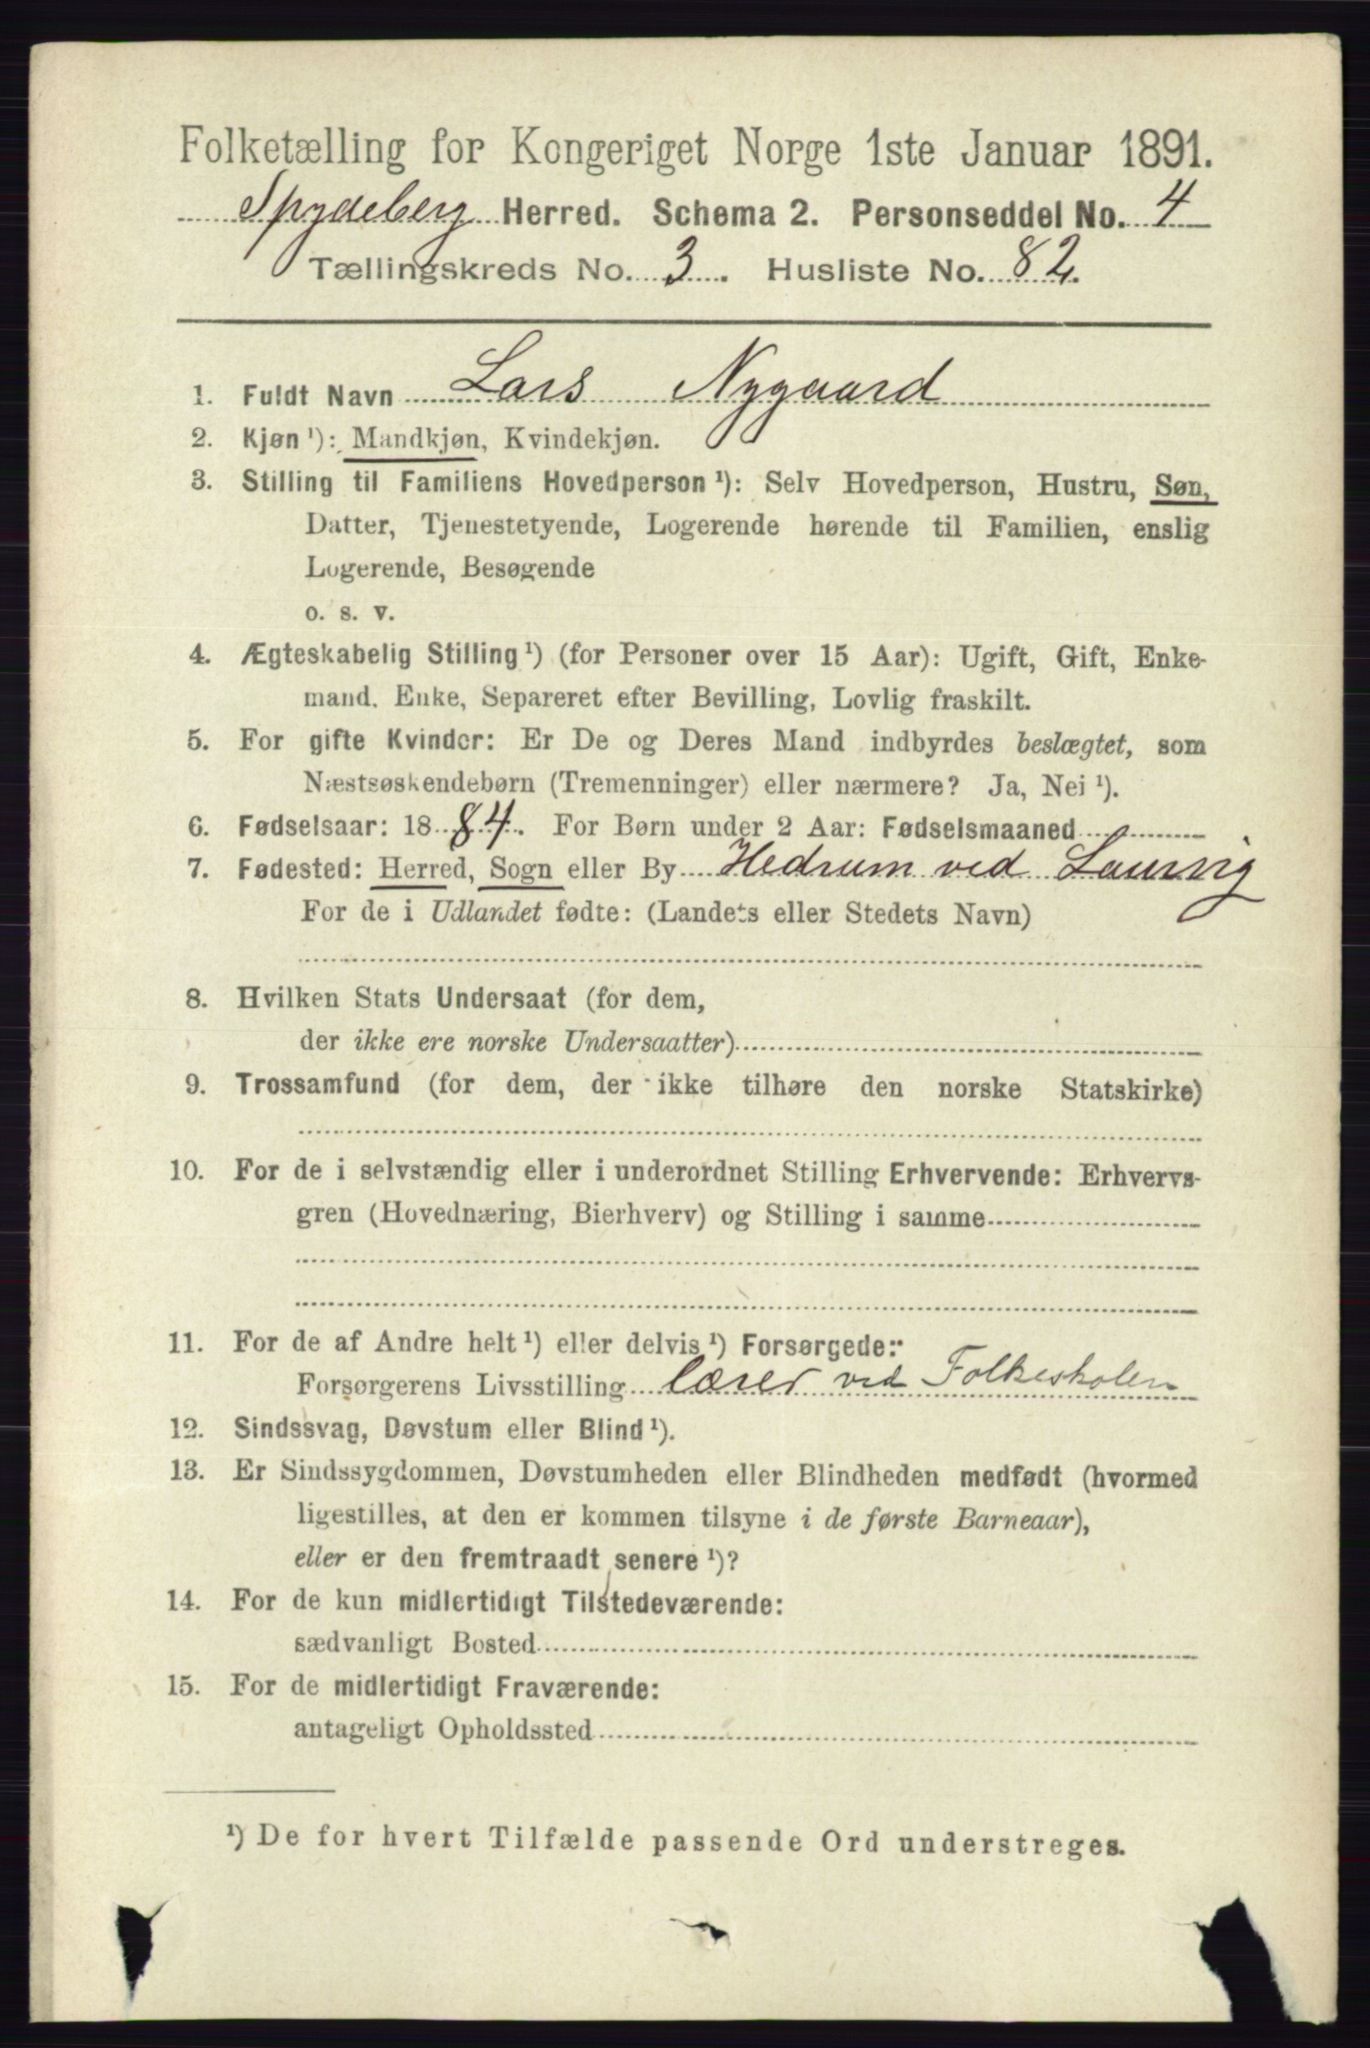 Folketælling for Kongeriget Norge 1ste Januar 1891.
Spydeberg Herred. Schema 2. Personseddel No. 4
Tællingskreds No. 3. Husliste No. 82.
1. Fuldt Navn Lars Nygaard
2. Kjøn ¹): Mandkjøn, Kvindekjøn.
3. Stilling til Familiens Hovedperson ¹): Selv Hovedperson, Hustru, Søn,
Datter, Tjenestetyende, Logerende hørende til Familien, enslig
Logerende, Besøgende
o. s. v.
4. Ægteskabelig Stilling ¹) (for Personer over 15 Aar): Ugift, Gift, Enke-
mand, Enke, Separeret efter Bevilling, Lovlig fraskilt.
5. For gifte Kvinder: Er De og Deres Mand indbyrdes beslægtet, som
Næstsøskendebørn (Tremenninger) eller nærmere? Ja, Nei ¹).
6. Fødselsaar: 1884. For Børn under 2 Aar: Fødselsmaaned
7. Fødested: Herred, Sogn eller By Hedrum ved Laurvig
For de i Udlandet fødte: (Landets eller Stedets Navn)
8. Hvilken Stats Undersaat (for dem,
der ikke ere norske Undersaatter)
9. Trossamfund (for dem, der ikke tilhøre den norske Statskirke)
10. For de i selvstændig eller i underordnet Stilling Erhvervende: Erhvervs-
gren (Hovednæring, Bierhverv) og Stilling i samme
11. For de af Andre helt ¹) eller delvis ¹) Forsørgede:
Forsørgerens Livsstilling lærer ved Folkeskolen
12. Sindssvag, Døvstum eller Blind ¹).
13. Er Sindssygdommen, Døvstumheden eller Blindheden medfødt (hvormed
ligestilles, at den er kommen tilsyne i de første Barneaar),
eller er den fremtraadt senere ¹)?
14. For de kun midlertidigt Tilstedeværende:
sædvanligt Bosted
15. For de midlertidigt Fraværende:
antageligt Opholdssted
¹) De for hvert Tilfælde passende Ord understreges.